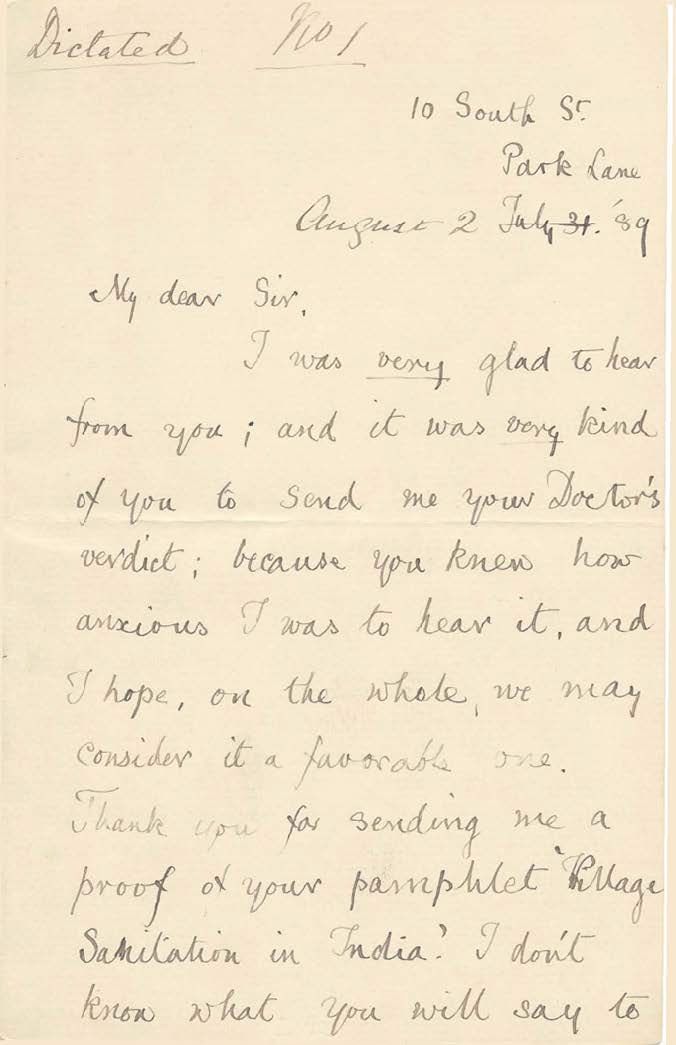 Dictated No 1
10 South St.
Park Lane
August 2 July 31. '89
My dear Sir,
I was very glad to hear
from you; and it was very kind
of you to send me your Doctor's
verdict; because you knew how
anxious I was to hear it, and
I hope, on the whole, we may
consider it a favorable one.
Thank you for sending me a
proof of your pamphlet 'Village
Sanitation in India.' I don't
know what you will say to